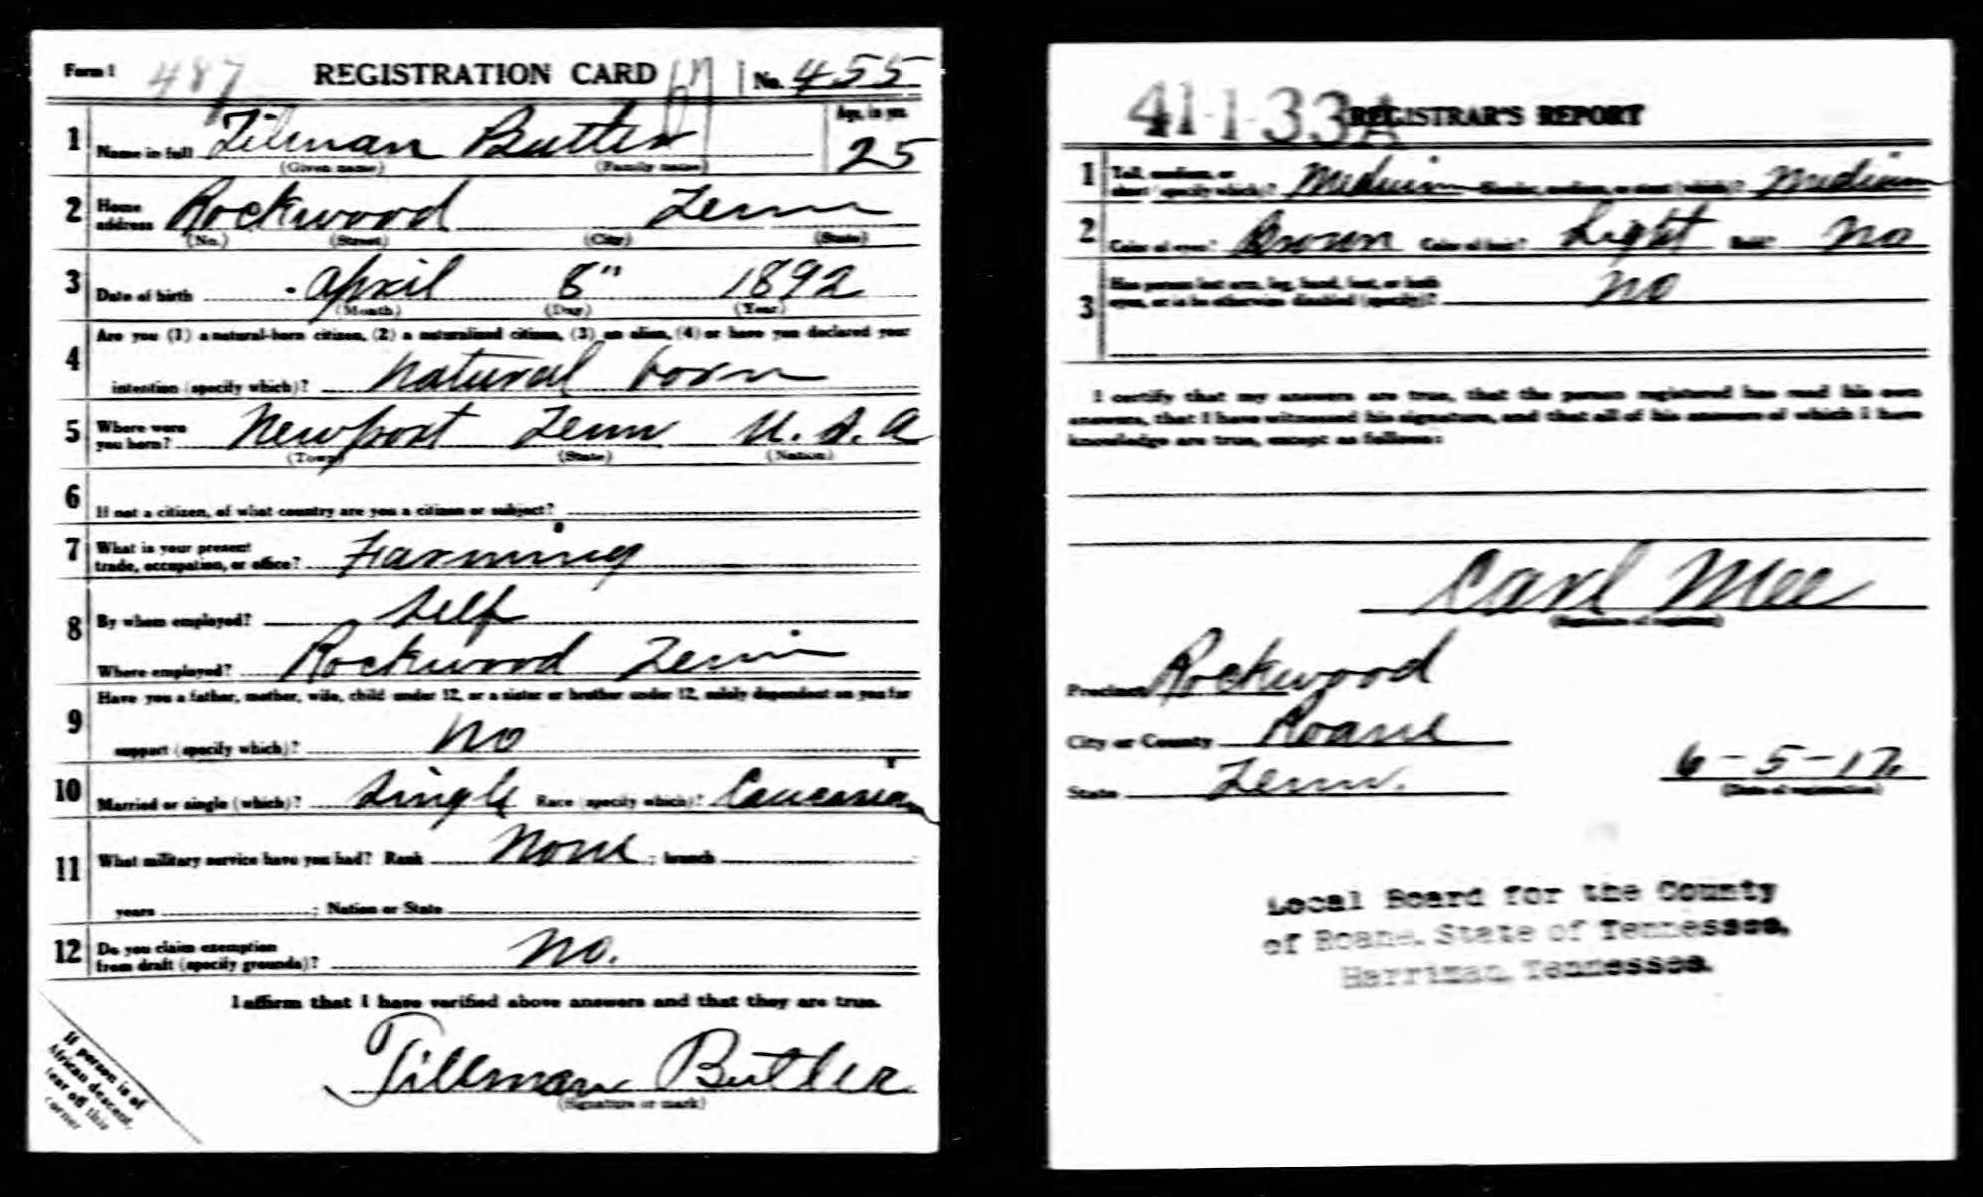 Form 1 487 REGISTRATION CARD No. 455
Age, in yrs.
1 Name in full Tilman Butler 25
(Given name) (Family name)
2 Home address Rockwood Tenn
(No.) (Street) (City) (State)
3 Date of birth April 8" 1892
(Month) (Day) (Year)
4 Are you (1) a natural-born citizen, (2) a naturalized citizen, (3) an alien, (4) or have you declared your
intention (specify which)? natural born
5 Where were you born? Newport Tenn U.S.A
(Town) (State) (Nation)
6 If not a citizen, of what country are you a citizen or subject?
7 What is your present trade, occupation, or office? Farming
8 By whom employed? Self
Where employed? Rockwood Tenn
9 Have you a father, mother, wife, child under 12, or a sister or brother under 12, solely dependent on you for
support (specify which)? No
10 Married or single (which)? Single Race (specify which)? Caucasian
11 What military service have you had? Rank None ; branch
years ; Nation or State
12 Do you claim exemption from draft (specify grounds)? No.
I affirm that I have verified above answers and that they are true.
Tillman Butler
(Signature or mark)
If person is of
African descent,
tear off this
corner
41-1-33 A REGISTRAR'S REPORT
1 Tall, medium, or short (specify which)? Medium Slender, medium, or stout (which)? Medium
2 Color of eyes? Brown Color of hair? Light Bald? No
3 Has person lost arm, leg, hand, foot, or both
eyes, or is he otherwise disabled (specify)? No
I certify that my answers are true, that the person registered has read his own
answers, that I have witnessed his signature, and that all of his answers of which I have
knowledge are true, except as follows:
Carl Mee
(Signature of registrar)
Precinct Rockwood
City or County Roane
State Tenn. 6-5-17
(Date of registration)
Local Board for the County
of Roane, State of Tennessee,
Harriman, Tennessee.